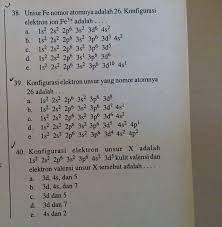 38. Unsur Fe nomor atomnya adalah 26. Konfigurasi
elektron ion Fe³⁺ adalah . . . .
a. 1s² 2s² 2p⁶ 3s² 3d⁶ 4s²
b. 1s² 2s² 2p⁶ 3s² 3p⁶ 3d³ 4s²
c. 1s² 2s² 2p⁶ 3s² 3p⁶ 3d⁵
d. 1s² 2s² 2p⁶ 3s² 3p⁶
e. 1s² 2s² 2p⁶ 3s² 3p⁶ 4s¹
39. Konfigurasi elektron unsur yang nomor atomnya
26 adalah . . .
a. 1s² 2s² 2p⁶ 3s² 3p⁶ 3d⁸
b. 1s² 2s² 2p⁶ 3s² 3p⁶ 3d⁷ 4s¹
c. 1s² 2s² 2p⁶ 3s² 3p⁶ 3d⁶ 4s²
d. 1s² 2s² 2p⁶ 3s² 3p⁶ 3d⁵ 4s² 4p¹
e. 1s² 2s² 2p⁶ 3s² 3p⁶ 3d⁴ 4s² 4p²
40. Konfigurasi elektron unsur X adalah
1s² 2s² 2p⁶ 3s² 3p⁶ 4s² 3d⁵ kulit valensi dan
elektron valensi unsur X tersebut adalah . . . .
a. 3d, 4s, dan 5
b. 3d, 4s, dan 7
c. 3d dan 5
d. 3d dan 7
e. 4s dan 2